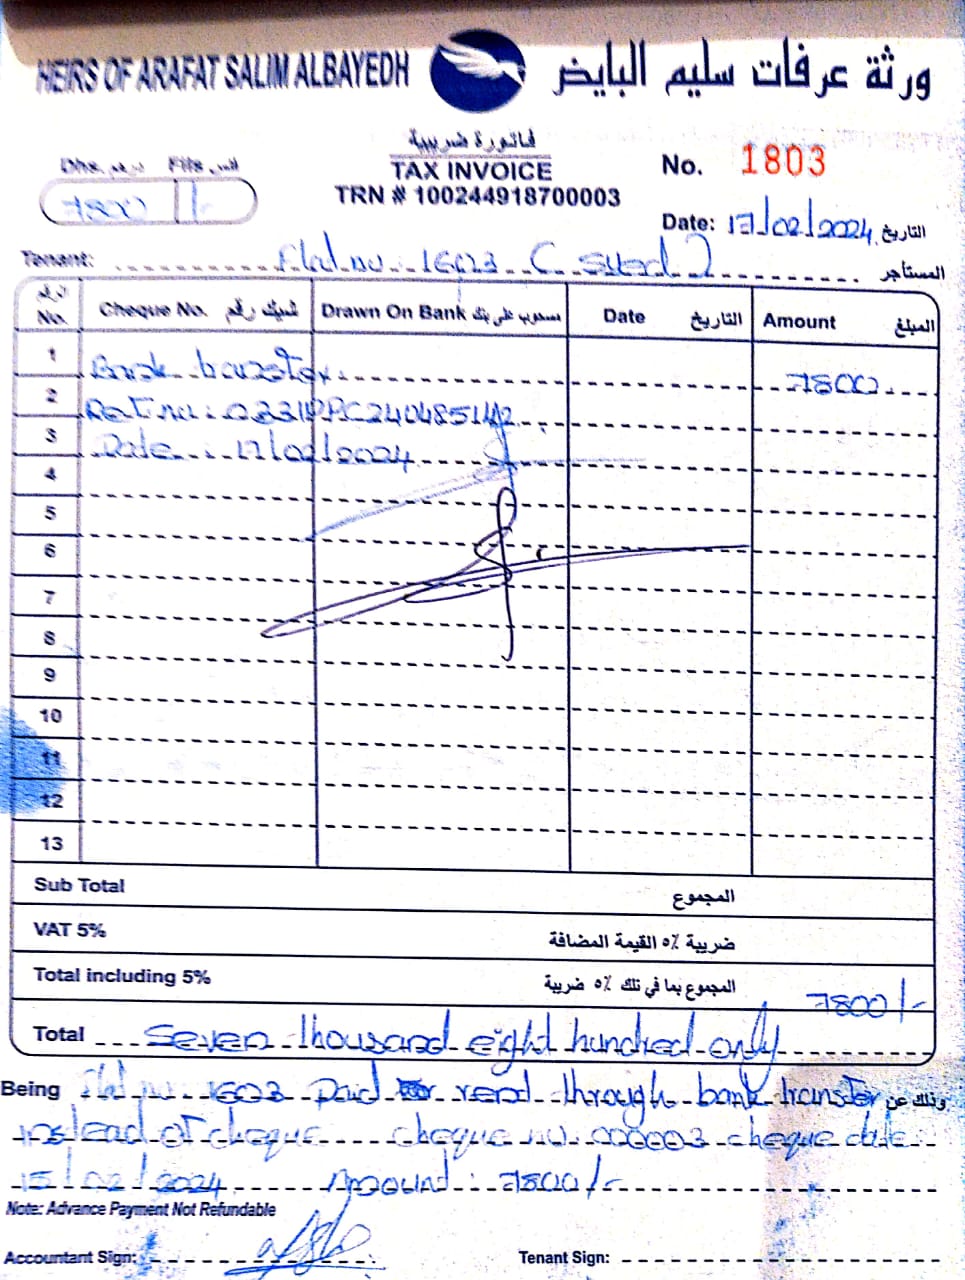 HEIRS OF ARAFAT SALIM ALBAYEDH ورثة عرفات سليم البايض
فاتورة ضريبية
TAX INVOICE
TRN # 100244918700003
Dhs. درهم Fils فلس
7800 /-
No. 1803
Date: 17/02/2024 التاريخ
Tenant: Flat no : 1603 ( Syed ) المستأجر
الرقم No. Cheque No. شيك رقم Drawn On Bank مسحوب على بنك Date التاريخ Amount المبلغ
1 Bank transfer 7800
2 Ref no : 033IPPC24048514
3 Date : 17/02/2024
4
5
6
7
8
9
10
11
12
13
Sub Total المجموع
VAT 5% ضريبة ٥٪ القيمة المضافة
Total including 5% المجموع بما في تلك ٥٪ ضريبة 7800/-
Total Seven thousand eight hundred only
Being Flat no : 1603 Paid rent through bank transfer وذلك عن
instead of cheque cheque no. 000003 cheque date :
15/02/2024 Amount : 7800/-
Note: Advance Payment Not Refundable
Accountant Sign: Tenant Sign: